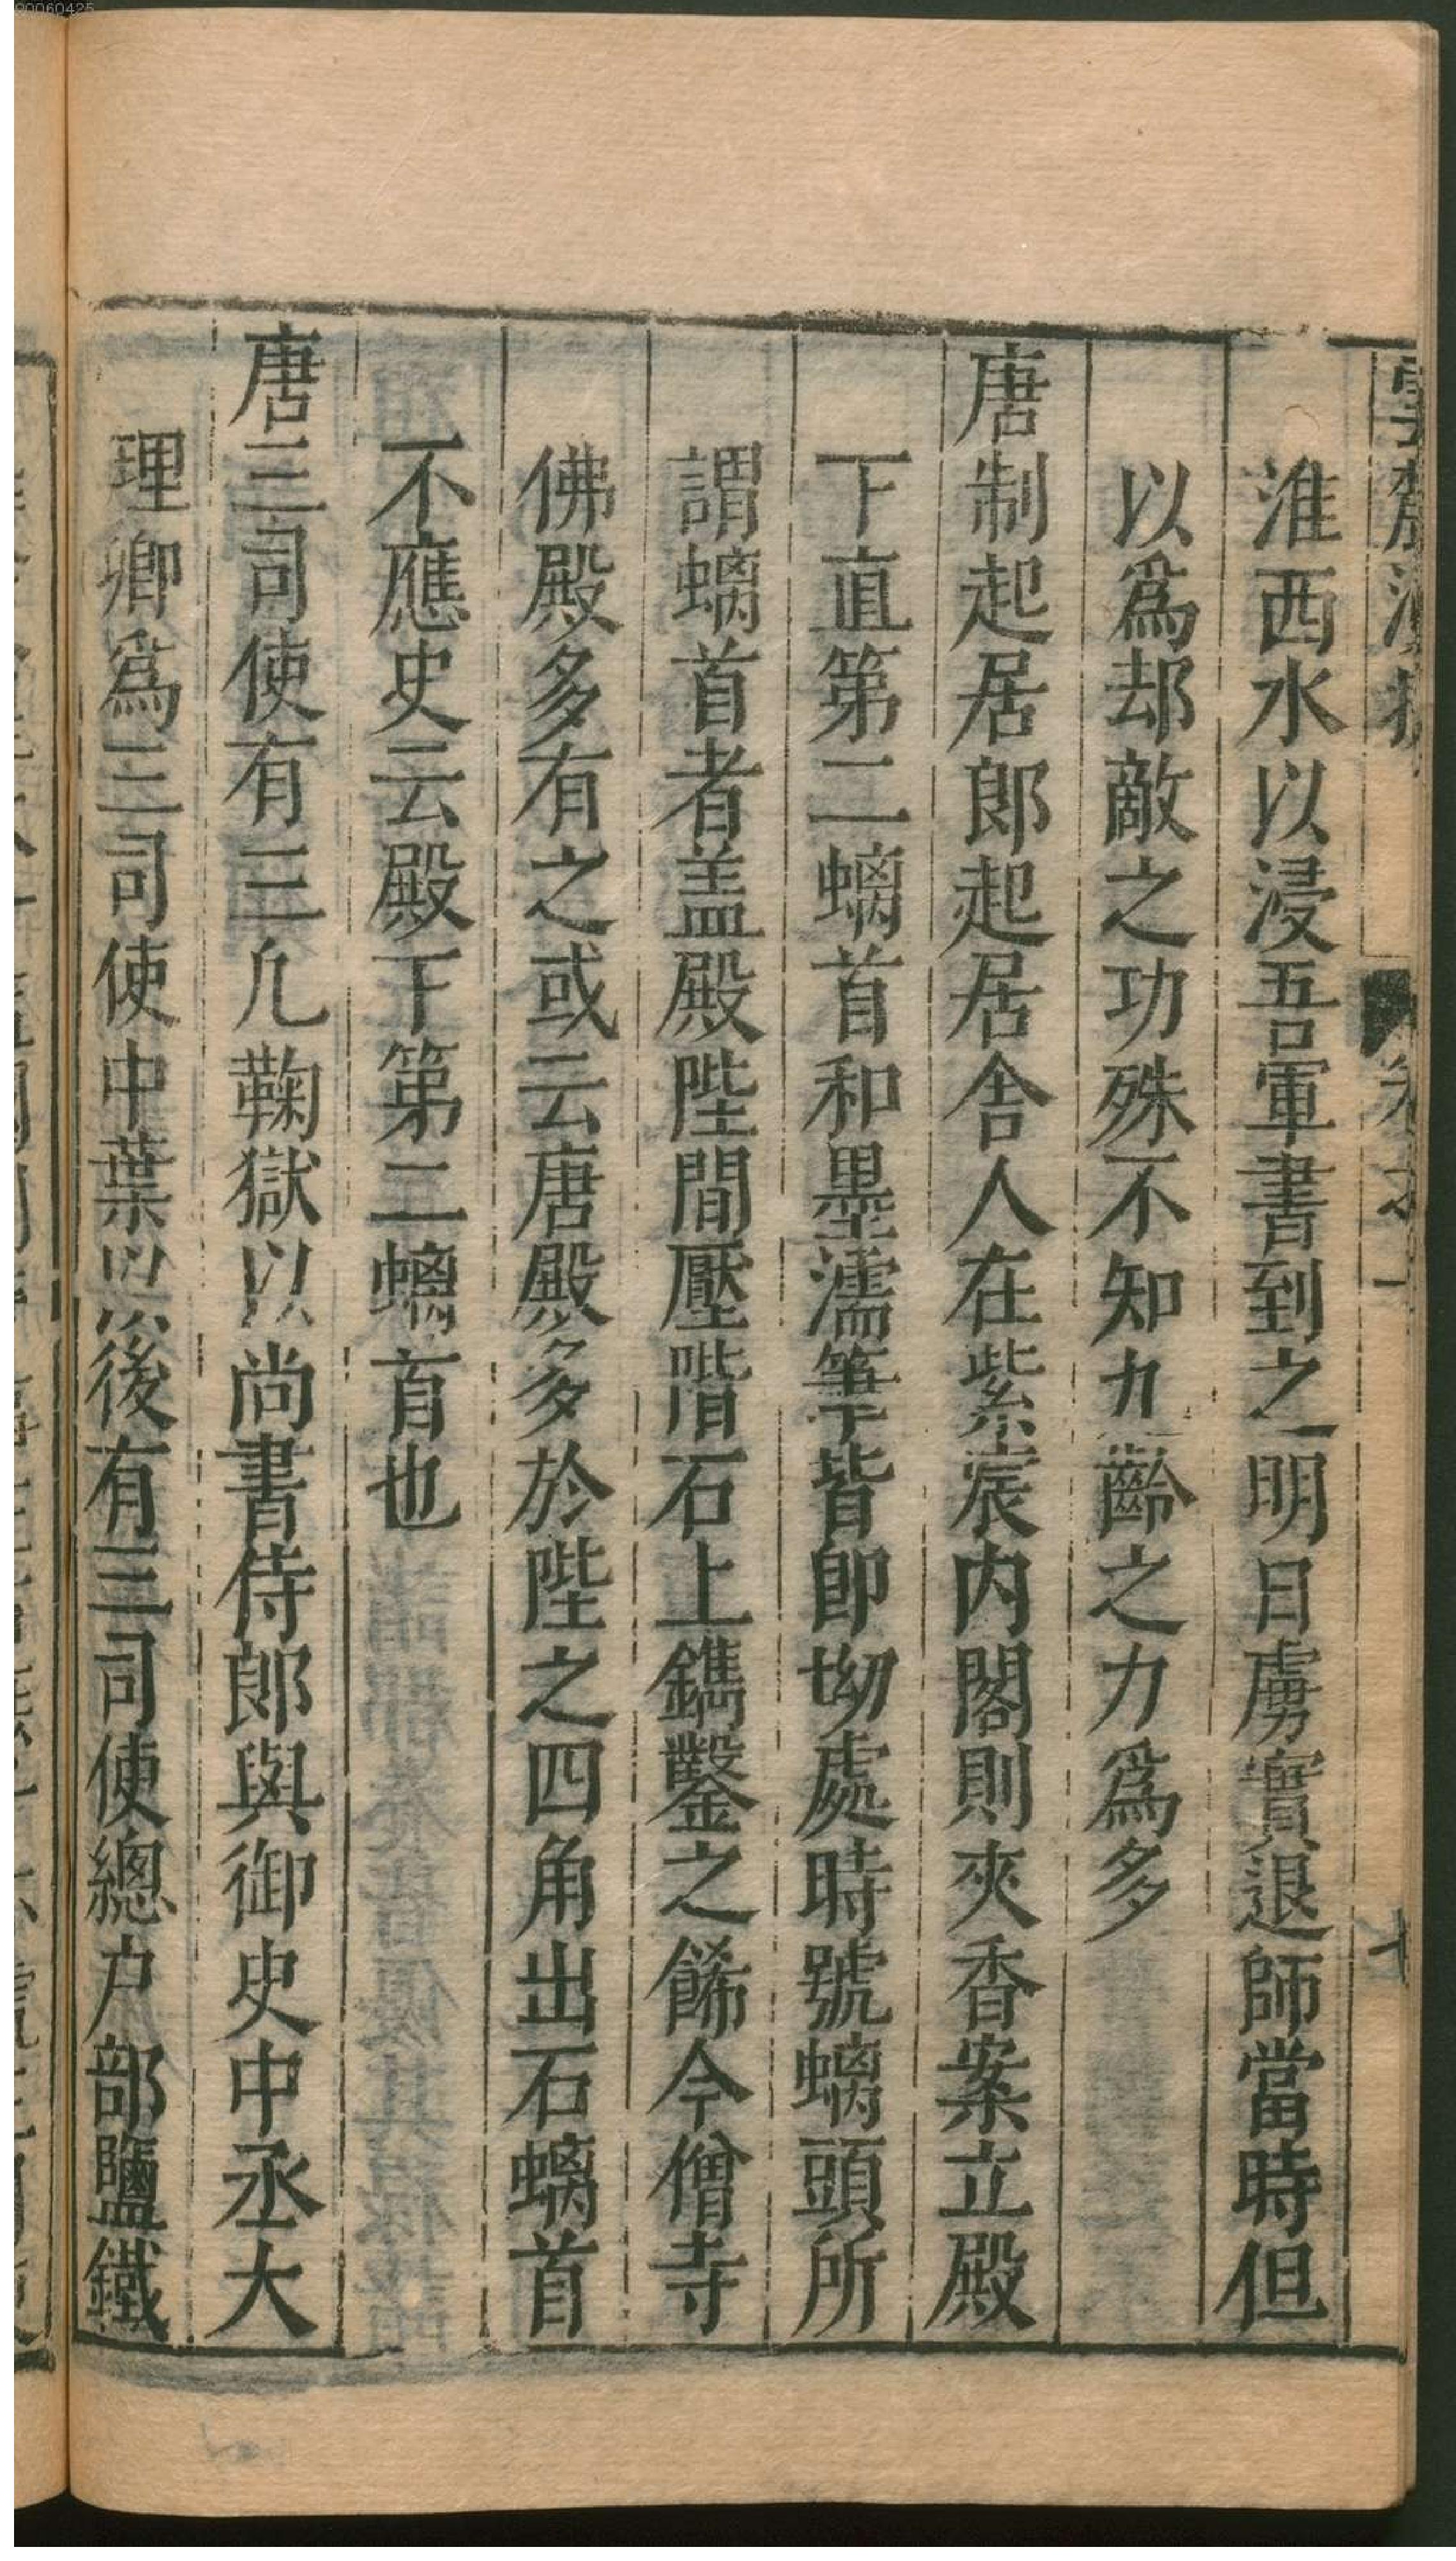 淮西水以浸吾軍書到之明日虜實退師當時但
以爲却敵之功殊不知九齡之力爲多
唐制起居郎起居舍人在紫宸内閣則夾香案立殿
下直第二螭首和墨濡筆皆卽坳處時號螭頭所
謂螭首者盖殿陛間壓階石上鐫鑿之餙今僧寺
佛殿多有之或云唐殿多於陛之四角出石螭首
不應史云殿下第二螭首也
唐三司使有三凢鞠獄以尚書侍郎與御史中丞大
理卿爲三司使中葉以後有三司使總户部鹽鐵